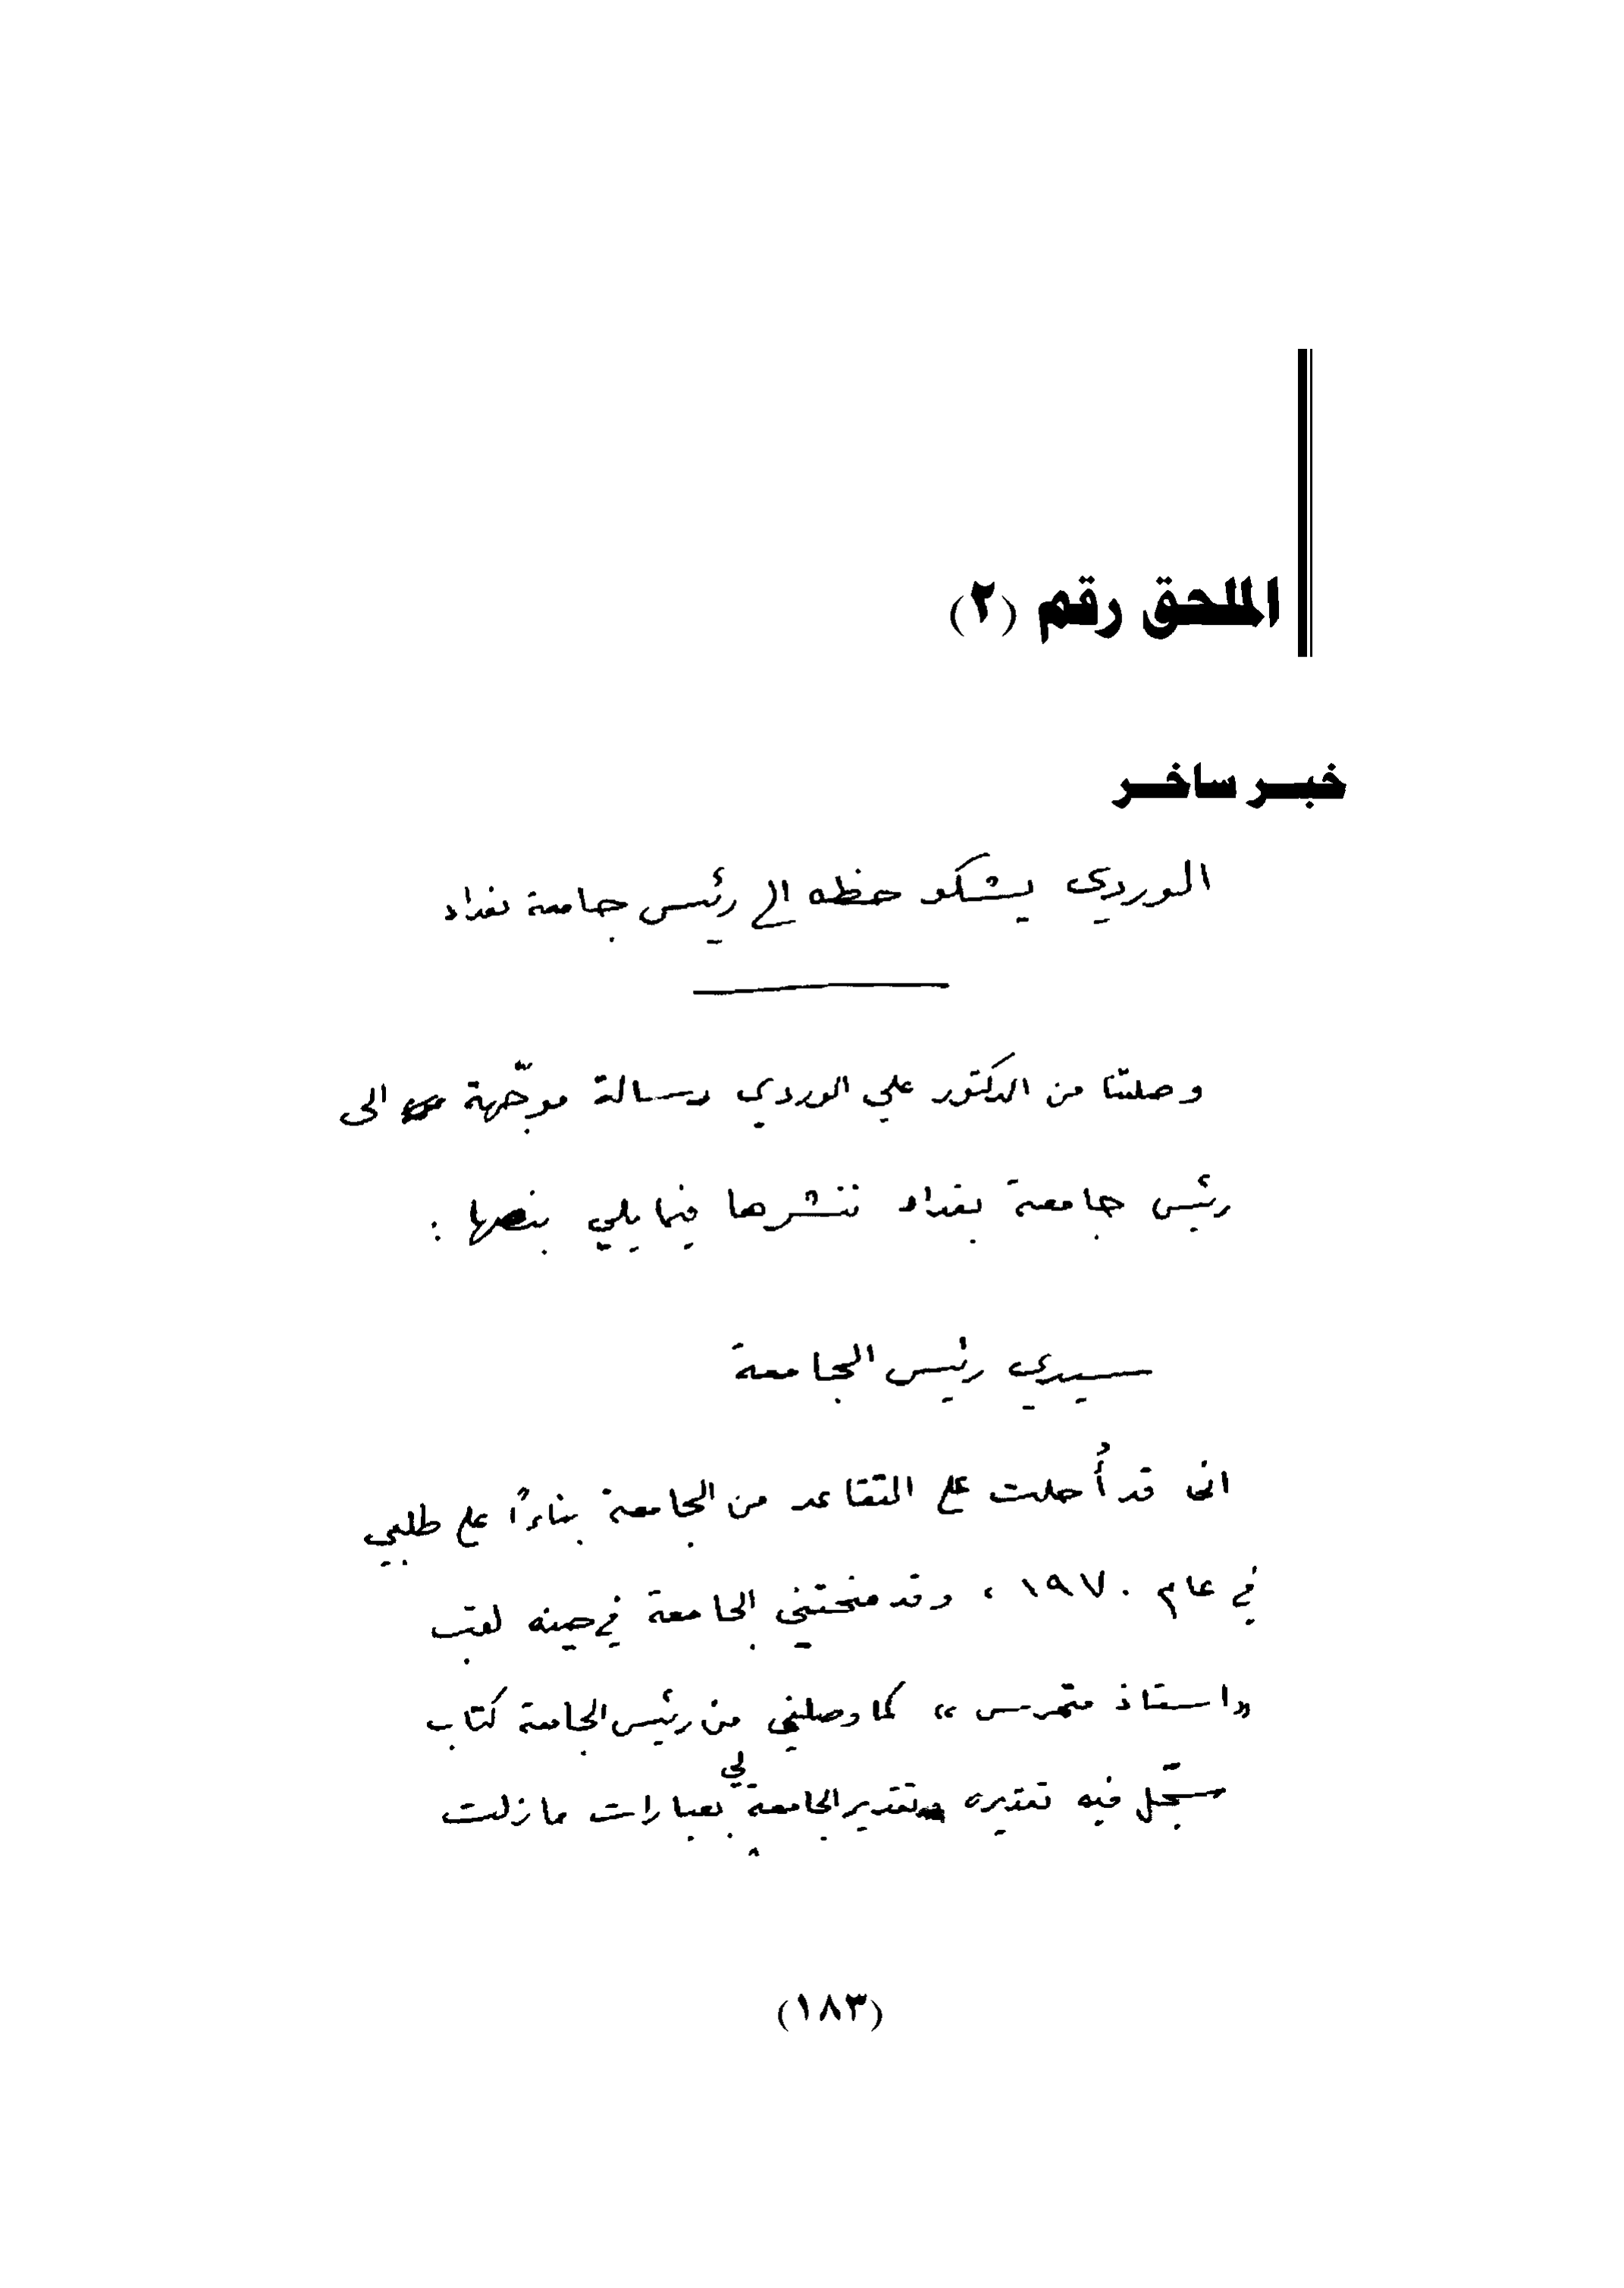 الملحق رقم (٢)
خبر ساخر
الوردي يشكو حظه الى رئيس جامعة بغداد
وصلتنا من الدكتور علي الوردي رسالة موجّهة الى
رئيس جامعة بغداد ننشرها فيما يلي بنصها :
سيدي رئيس الجامعة
اني قد أُحلت على التقاعد من الجامعة بناءاً على طلبي
في عام ١٩٧٠ ، وقد منحتني الجامعة في حينه لقب
«استاذ متمرس» كما وصلني من رئيس الجامعة كتاب
سجّل فيه تقديره وتقدير الجامعة لي بعبارات مازلت
(١٨٣)